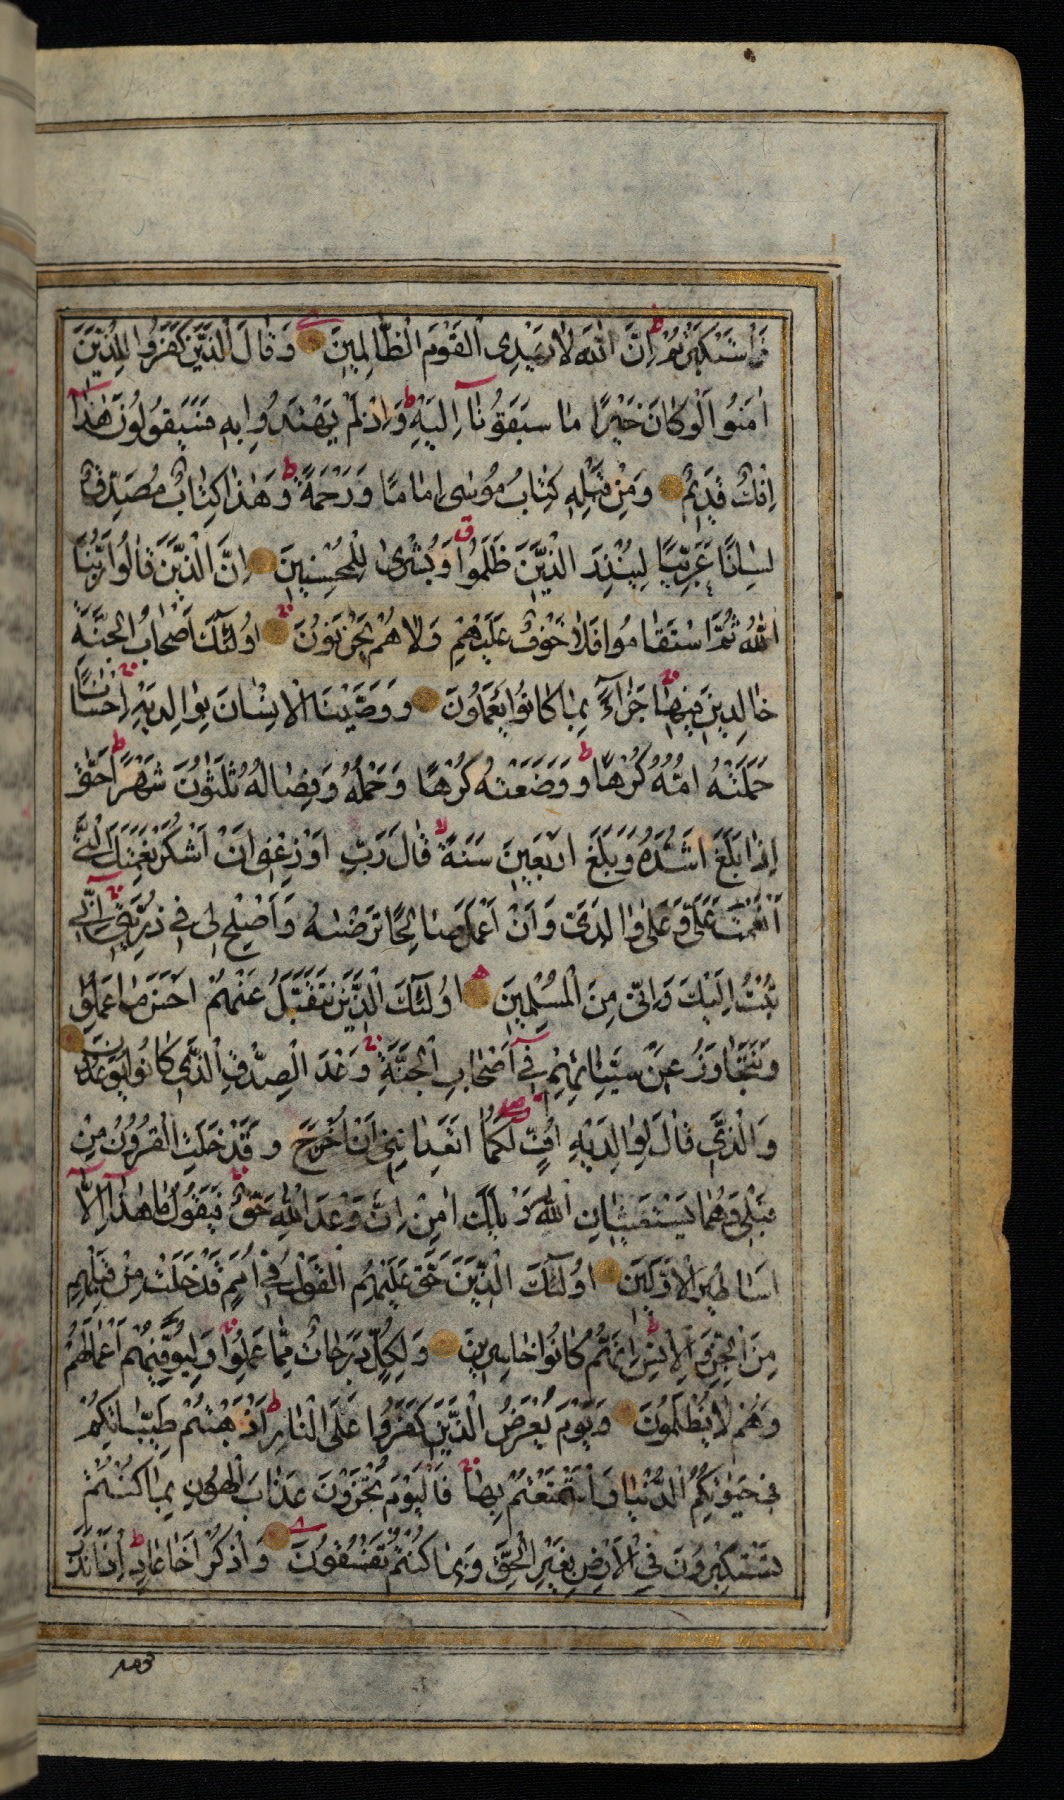 وَاسْتَكْبَرْتُمْ اِنَّ اللّٰهَ لَا يَهْدِى الْقَوْمَ الظَّالِمِينَ وَقَالَ الَّذِينَ كَفَرُوا لِلَّذِينَ
اٰمَنُوا لَوْ كَانَ خَيْرًا مَا سَبَقُونَآ اِلَيْهِ وَاِذْ لَمْ يَهْتَدُوا بِهِ فَسَيَقُولُونَ هٰذَآ
اِفْكٌ قَدِيمٌ وَمِنْ قَبْلِهِ كِتَابُ مُوسٰى اِمَامًا وَرَحْمَةً وَهٰذَا كِتَابٌ مُصَدِّقٌ
لِسَانًا عَرَبِيًّا لِيُنْذِرَ الَّذِينَ ظَلَمُوا وَبُشْرٰى لِلْمُحْسِنِينَ اِنَّ الَّذِينَ قَالُوا رَبُّنَا
اللّٰهُ ثُمَّ اسْتَقَامُوا فَلَا خَوْفٌ عَلَيْهِمْ وَلَا هُمْ يَحْزَنُونَ اُولٰٓئِكَ اَصْحَابُ الْجَنَّةِ
خَالِدِينَ فِيهَا جَزَآءً بِمَا كَانُوا يَعْمَلُونَ وَوَصَّيْنَا الْاِنْسَانَ بِوَالِدَيْهِ اِحْسَانًا
حَمَلَتْهُ اُمُّهُ كُرْهًا وَوَضَعَتْهُ كُرْهًا وَحَمْلُهُ وَفِصَالُهُ ثَلٰثُونَ شَهْرًا حَتّٰى
اِذَا بَلَغَ اَشُدَّهُ وَبَلَغَ اَرْبَعِينَ سَنَةً قَالَ رَبِّ اَوْزِعْنِى اَنْ اَشْكُرَ نِعْمَتَكَ الَّتِى
اَنْعَمْتَ عَلَىَّ وَعَلٰى وَالِدَىَّ وَاَنْ اَعْمَلَ صَالِحًا تَرْضٰيهُ وَاَصْلِحْ لِى فِى ذُرِّيَّتِى اِنِّى
تُبْتُ اِلَيْكَ وَاِنِّى مِنَ الْمُسْلِمِينَ اُولٰٓئِكَ الَّذِينَ نَتَقَبَّلُ عَنْهُمْ اَحْسَنَ مَا عَمِلُوا
وَنَتَجَاوَزُ عَنْ سَيِّئَاتِهِمْ فِىٓ اَصْحَابِ الْجَنَّةِ وَعْدَ الصِّدْقِ الَّذِى كَانُوا يُوعَدُونَ
وَالَّذِى قَالَ لِوَالِدَيْهِ اُفٍّ لَكُمَا اَتَعِدَانِنِى اَنْ اُخْرَجَ وَقَدْ خَلَتِ الْقُرُونُ مِنْ
قَبْلِى وَهُمَا يَسْتَغِيثَانِ اللّٰهَ وَيْلَكَ اٰمِنْ اِنَّ وَعْدَ اللّٰهِ حَقٌّ فَيَقُولُ مَا هٰذَآ اِلَّآ
اَسَاطِيرُ الْاَوَّلِينَ اُولٰٓئِكَ الَّذِينَ حَقَّ عَلَيْهِمُ الْقَوْلُ فِىٓ اُمَمٍ قَدْ خَلَتْ مِنْ قَبْلِهِمْ
مِنَ الْجِنِّ وَالْاِنْسِ اِنَّهُمْ كَانُوا خَاسِرِينَ وَلِكُلٍّ دَرَجَاتٌ مِمَّا عَمِلُوا وَلِيُوَفِّيَهُمْ اَعْمَالَهُمْ
وَهُمْ لَا يُظْلَمُونَ وَيَوْمَ يُعْرَضُ الَّذِينَ كَفَرُوا عَلَى النَّارِ اَذْهَبْتُمْ طَيِّبَاتِكُمْ
فِى حَيٰوتِكُمُ الدُّنْيَا وَاسْتَمْتَعْتُمْ بِهَا فَالْيَوْمَ تُجْزَوْنَ عَذَابَ الْهُونِ بِمَا كُنْتُمْ
تَسْتَكْبِرُونَ فِى الْاَرْضِ بِغَيْرِ الْحَقِّ وَبِمَا كُنْتُمْ تَفْسُقُونَ وَاذْكُرْ اَخَا عَادٍ اِذْ اَنْذَرَ